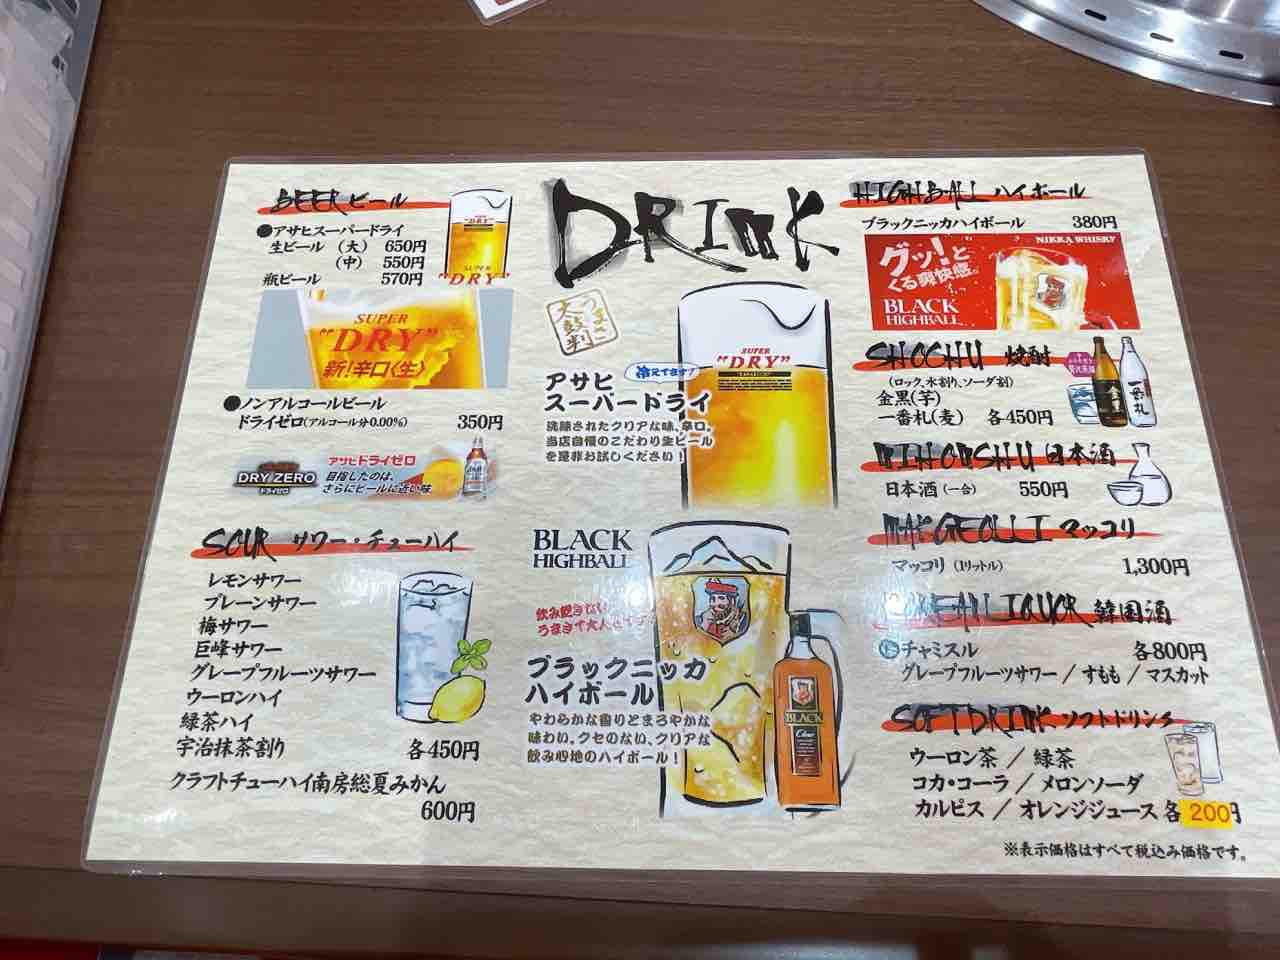 BEER ビール
●アサヒスーパードライ
生ビール (大) 650円
(中) 550円
瓶ビール 570円
SUPER
"DRY"
SUPER
DRY
SUPER
"DRY"
新!辛口〈生〉
●ノンアルコールビール
ドライゼロ(アルコール分0.00%) 350円
DRY ZERO
ドライゼロ
アサヒドライゼロ
目指したのは、
さらにビールに近い味
SOUR サワー・チューハイ
レモンサワー
プレーンサワー
梅サワー
巨峰サワー
グレープフルーツサワー
ウーロンハイ
緑茶ハイ
宇治抹茶割り 各450円
クラフトチューハイ南房総夏みかん
600円
DRINK
うまさに
太鼓判
冷えてます!
アサヒ
スーパードライ
洗練されたクリアな味、辛口。
当店自慢のこだわり生ビール
を是非お試しください!
SUPER
"DRY"
BLACK
HIGHBALL
飲み飽きない
ブラックニッカ
ハイボール
やわらかな香りとまろやかな
味わい、クセのない、クリアな
飲み心地のハイボール!
BLACK
Clear
HIGHBALL ハイボール
ブラックニッカハイボール 380円
グッ!と
くる爽快感。
NIKKA WHISKY
BLACK
HIGHBALL
SHOCHU 焼酎
(ロック、水割り、ソーダ割)
金黒(芋)
一番札(麦) 各450円
金黒
一番札
NIHONSHU 日本酒
日本酒 (一合) 550円
MAKGEOLLI マッコリ
マッコリ (1リットル) 1,300円
KOREAN LIQUOR 韓国酒
チャミスル 各800円
グレープフルーツサワー / すもも / マスカット
SOFT DRINK ソフトドリンク
ウーロン茶 / 緑茶
コカ・コーラ / メロンソーダ
カルピス / オレンジジュース 各200円
※表示価格はすべて税込み価格です。